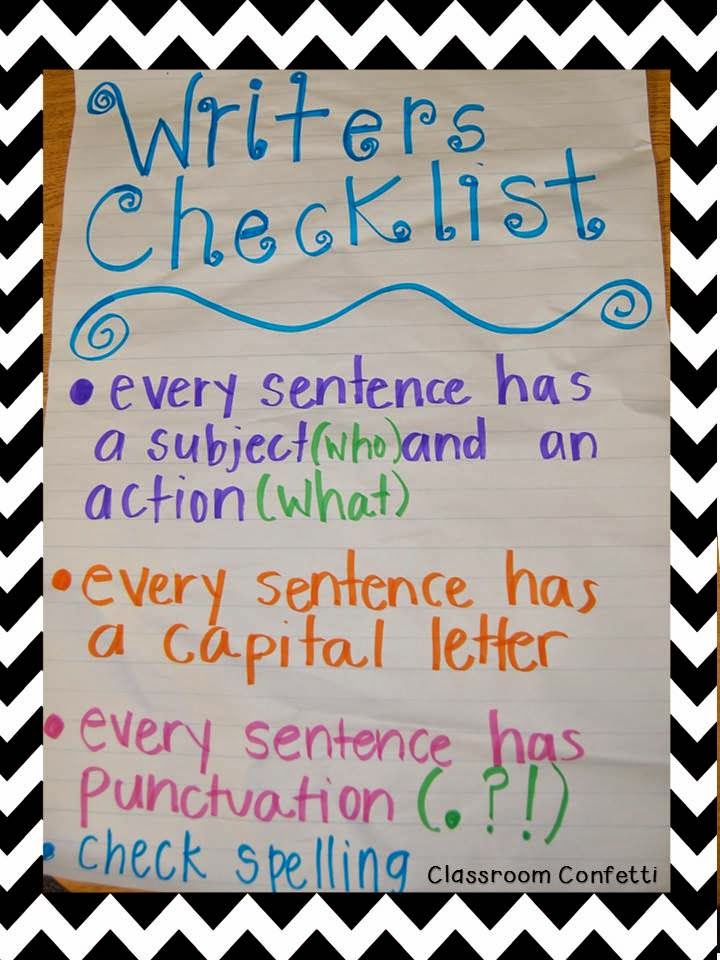 Writers
Checklist
• every sentence has
a subject(who)and an
action(what)
• every sentence has
a capital letter
• every sentence has
punctuation (.?!)
• check spelling
Classroom Confetti